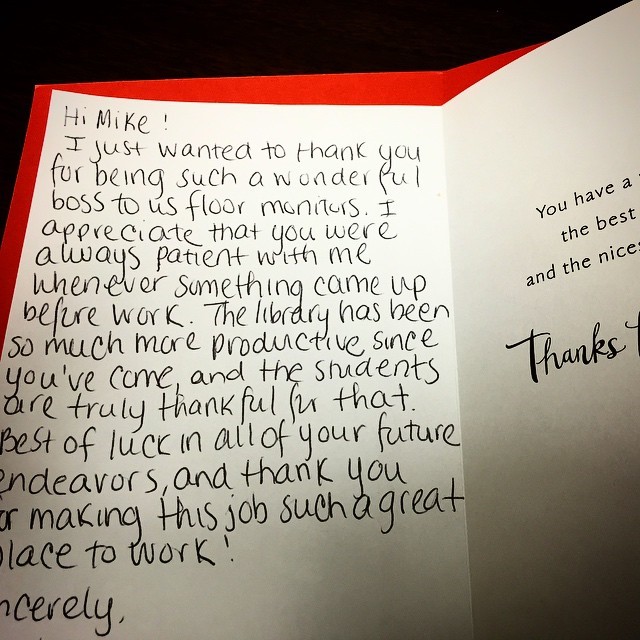 Hi Mike!
I just wanted to thank you
for being such a wonderful
boss to us floor monitors. I
appreciate that you were
always patient with me
whenever something came up
before work. The library has been
so much more productive since
you've come, and the students
are truly thankful for that.
Best of luck in all of your future
endeavors, and thank you
for making this job such a great
place to work!
ncerely,
You have a
the best
and the nices
Thanks